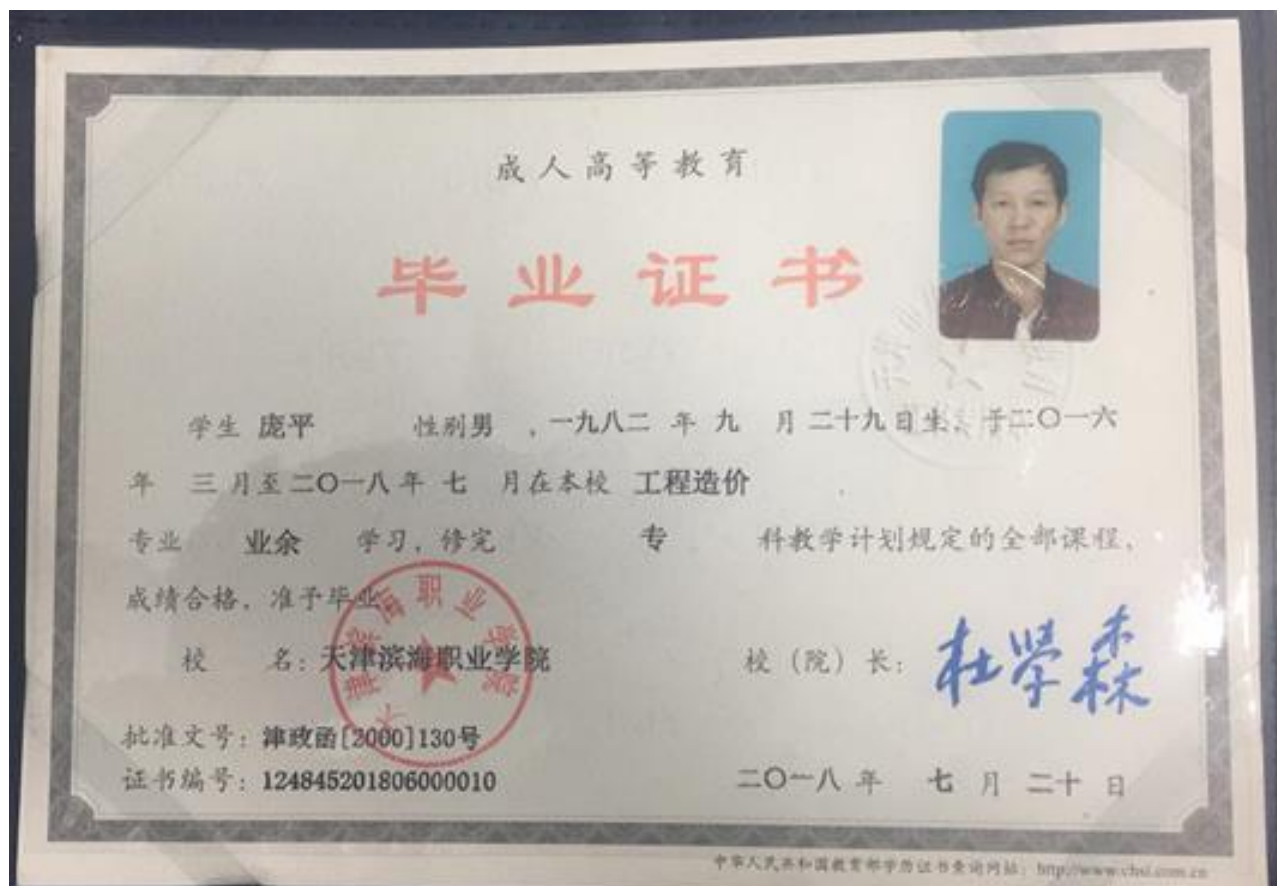 成人高等教育
毕业证书
学生 庞平 性别 男 ，一九八二 年 九 月 二十九日生，于二〇一六
年 三 月至二〇一八年 七 月在本校 工程造价
专业 业余 学习，修完 专 科教学计划规定的全部课程，
成绩合格，准予毕业
校 名：天津滨海职业学院
校（院）长：杜学森
天津滨海职业学院
批准文号：津政函[2000]130号
证书编号：124845201806000010
二〇一八年 七 月 二十 日
中华人民共和国教育部学历证书查询网站：http://www.chsi.com.cn